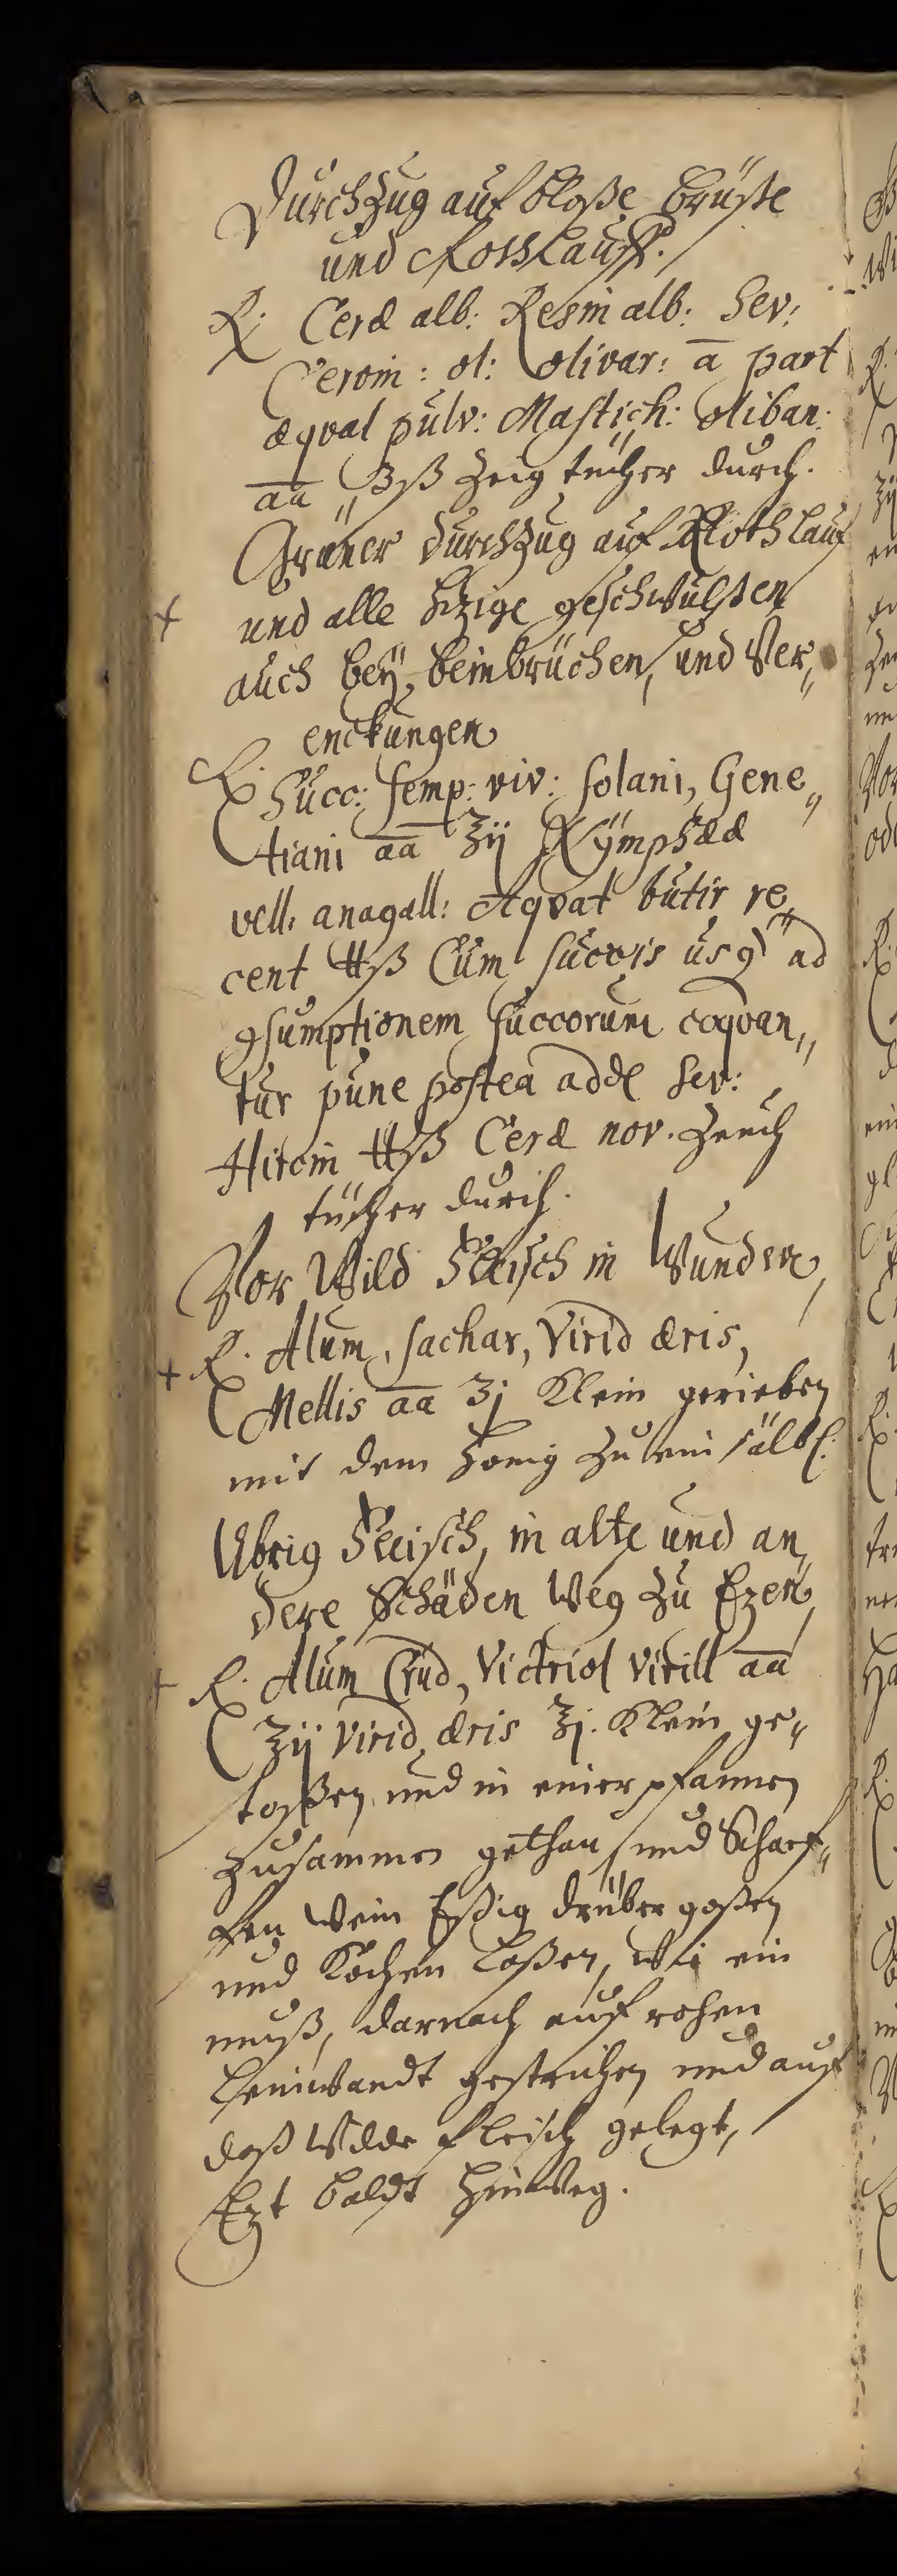 Durchzug auf bloße brüste
und Rothlauff.
℞. Ceræ alb: Resin alb: Sev:
Cervin: ol: olivar: a part
æqval pulv: Mastich: oliban:
aa ʒß Zeig tücher durch.
Grüner durchzug auf Rothlauf
+ und alle hizige geschwulsten
auch beÿ beinbrüchen, und Ver„
enckungen
℞. Succ: semp: viv: solani, Gene„
tiani aa ℥ij Nÿmphææ
vell. anagall: Aqvat butir re„
cent ℔ß Cum succis usq ad
gsumptionem succorum coqvan„
tur pune postea adde Sev:
Hircin ℔ß Ceræ nov. Zeuch
tücher durch.
Vor Wild Fleisch in Wunden,
+ ℞. Alum, sachar, Virid æris,
Mellis aa ʒj Klein gerieben
mit dem honig zu ein sälbl.
Ubrig Fleisch, in alte und an„
dere Schäden Weg zu Ezen,
+ ℞. Alum Crud, Victriol Virill aa
℥ij Virid æris ℥j. Klein ge„
stoßen, und in einer pfannen
zusammen gethan, und Scharf„
fen Wein Eßig drüber goßen
und Kochen laßen, Wie ein
muß, darnach auf rohen
leinwandt gestrichen und auf
daß Wilde fleisch gelegt,
Ezt baldt hinweg.